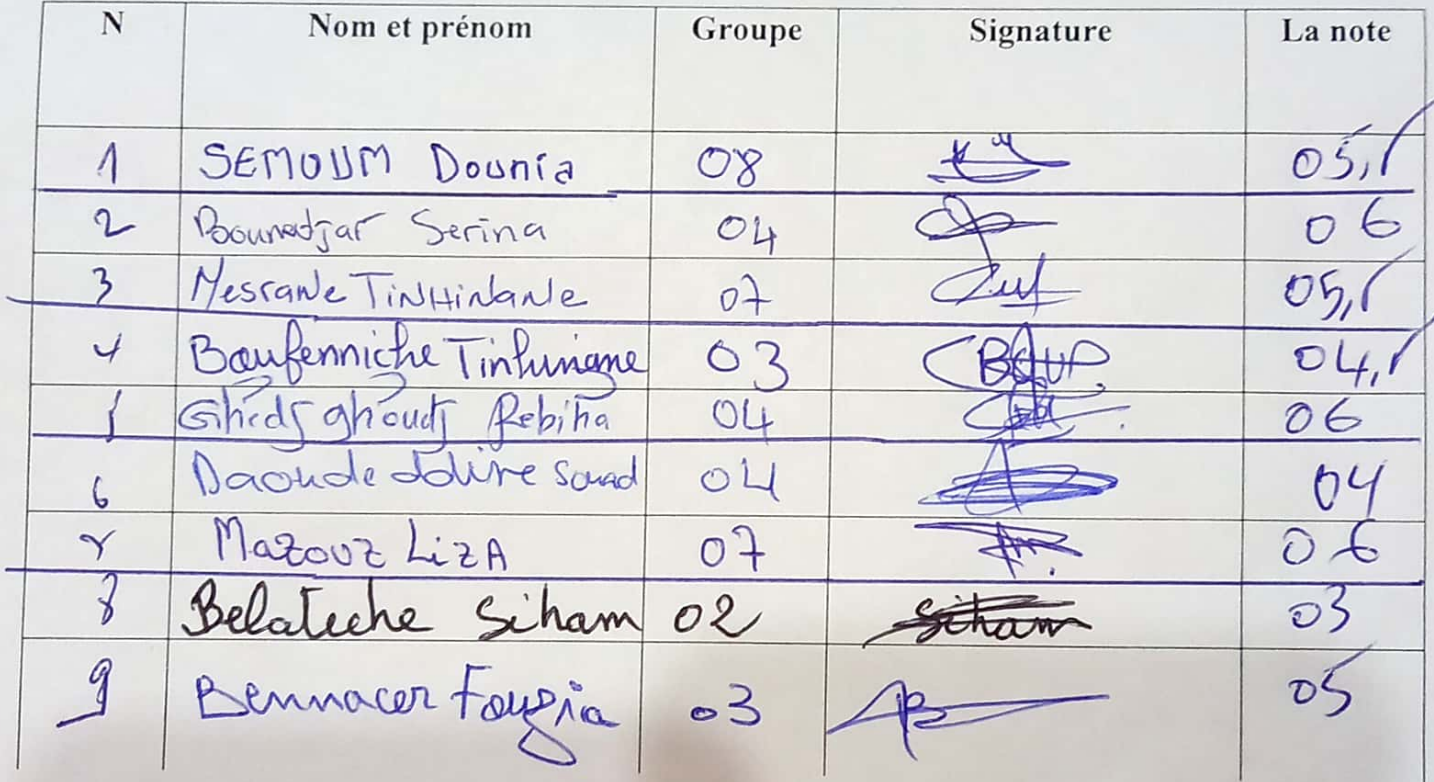 N Nom et prénom Groupe Signature La note
1 SEMOUM Dounia 08 05,5
2 Bounedjar Serina 04 06
3 Mesrane TiNHiNaNe 07 05,5
4 Boufenniche Tinhinane 03 04,5
5 Ghedj ghoudj Rebiha 04 06
6 Daoude Souad 04 04
7 Mazouz LizA 07 06
8 Belateche Siham 02 Siham 03
9 Bennacer Fouzia 03 05